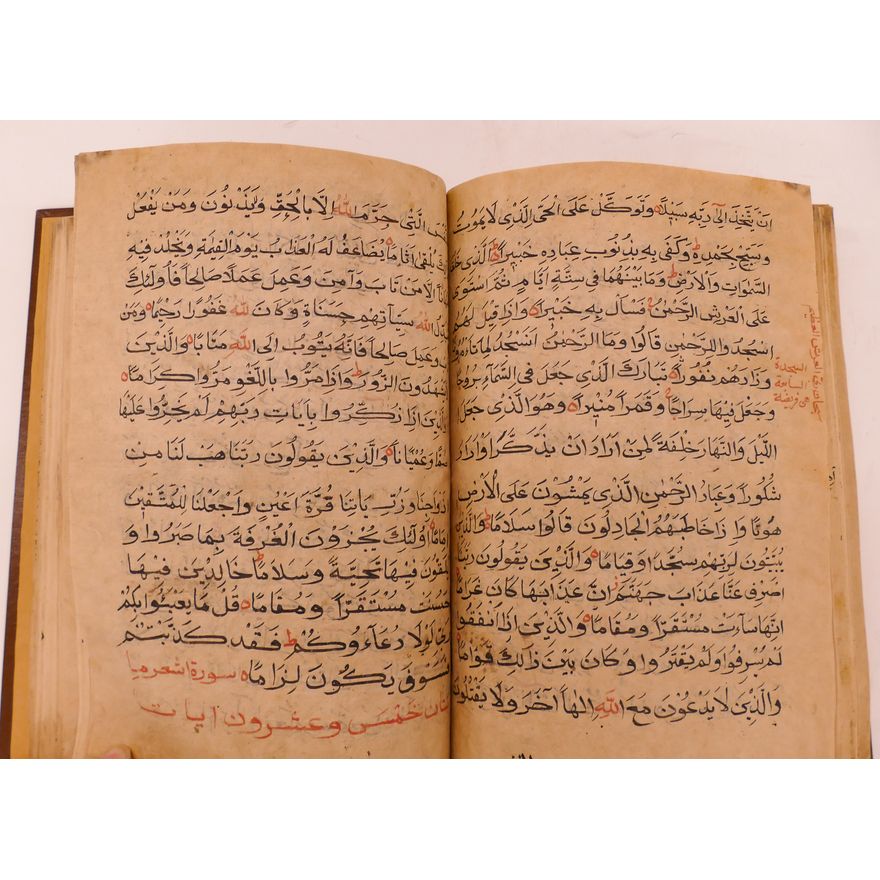 ان يتخذ الى ربه سبيلا وتوكل على الحي الذي لا يموت
وسبح بحمده وكفى به بذنوب عباده خبيرا الذي خلق
السموات والارض وما بينهما في ستة ايام ثم استوى
على العرش الرحمن فسال به خبيرا واذا قيل لهم
اسجدوا للرحمن قالوا وما الرحمن انسجد لما تامرنا
وزادهم نفورا تبارك الذي جعل في السمآء بروجا
وجعل فيها سراجا وقمرا منيرا وهو الذي جعل
الليل والنهار خلفة لمن اراد ان يذكر او اراد
شكورا وعباد الرحمن الذين يمشون على الارض
هونا واذا خاطبهم الجاهلون قالوا سلاما والذين
يبيتون لربهم سجدا وقياما والذين يقولون ربنا
اصرف عنا عذاب جهنم ان عذابها كان غراما
انها سآءت مستقرا ومقاما والذين اذا انفقوا
لم يسرفوا ولم يقتروا وكان بين ذالك قواما
والذين لا يدعون مع الله الها آخر ولا يقتلون
السجدة
السابعة
التي حرم الله الا بالحق ولا يزنون ومن يفعل
يلقى اثاما يضاعف له العذاب يوم القيمة ويخلد فيه
الا من تاب وآمن وعمل عملا صالحا فاولئك
الله سيآتهم حسنات وكان الله غفورا رحيما ومن
وعمل صالحا فانه يتوب الى الله متابا والذين
يشهدون الزور واذا مروا باللغو مروا كراما
والذين اذا ذكروا بآيات ربهم لم يخروا عليها
صما وعميانا والذين يقولون ربنا هب لنا من
ازواجنا وذرياتنا قرة اعين واجعلنا للمتقين
اماما اولئك يجزون الغرفة بما صبروا و
يلقون فيها تحية وسلاما خالدين فيها
حسنت مستقرا ومقاما قل ما يعبؤا بكم
لولا دعآؤكم فقد كذبتم
فسوف يكون لزاما سورة اشعر
خمس وعشرون ايات